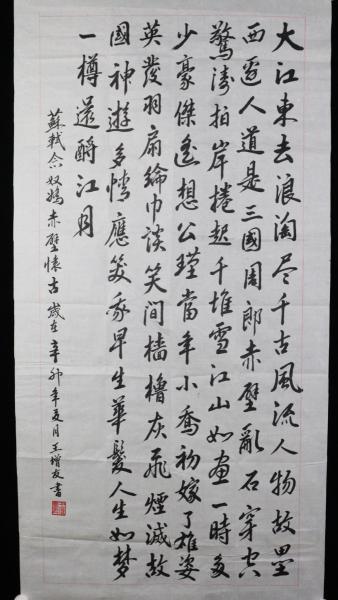 大江東去浪淘尽千古風流人物故壘
西邊人道是三國周郎赤壁亂石穿空
驚濤拍岸捲起千堆雪江山如畫一時多
少豪傑遙想公瑾當年小喬初嫁了雄姿
英發羽扇綸巾談笑间檣櫓灰飛煙滅故
國神遊多情應笑我早生華髮人生如梦
一樽還酹江月
蘇軾念奴嬌赤壁懷古 歲在辛卯年夏月王增友書